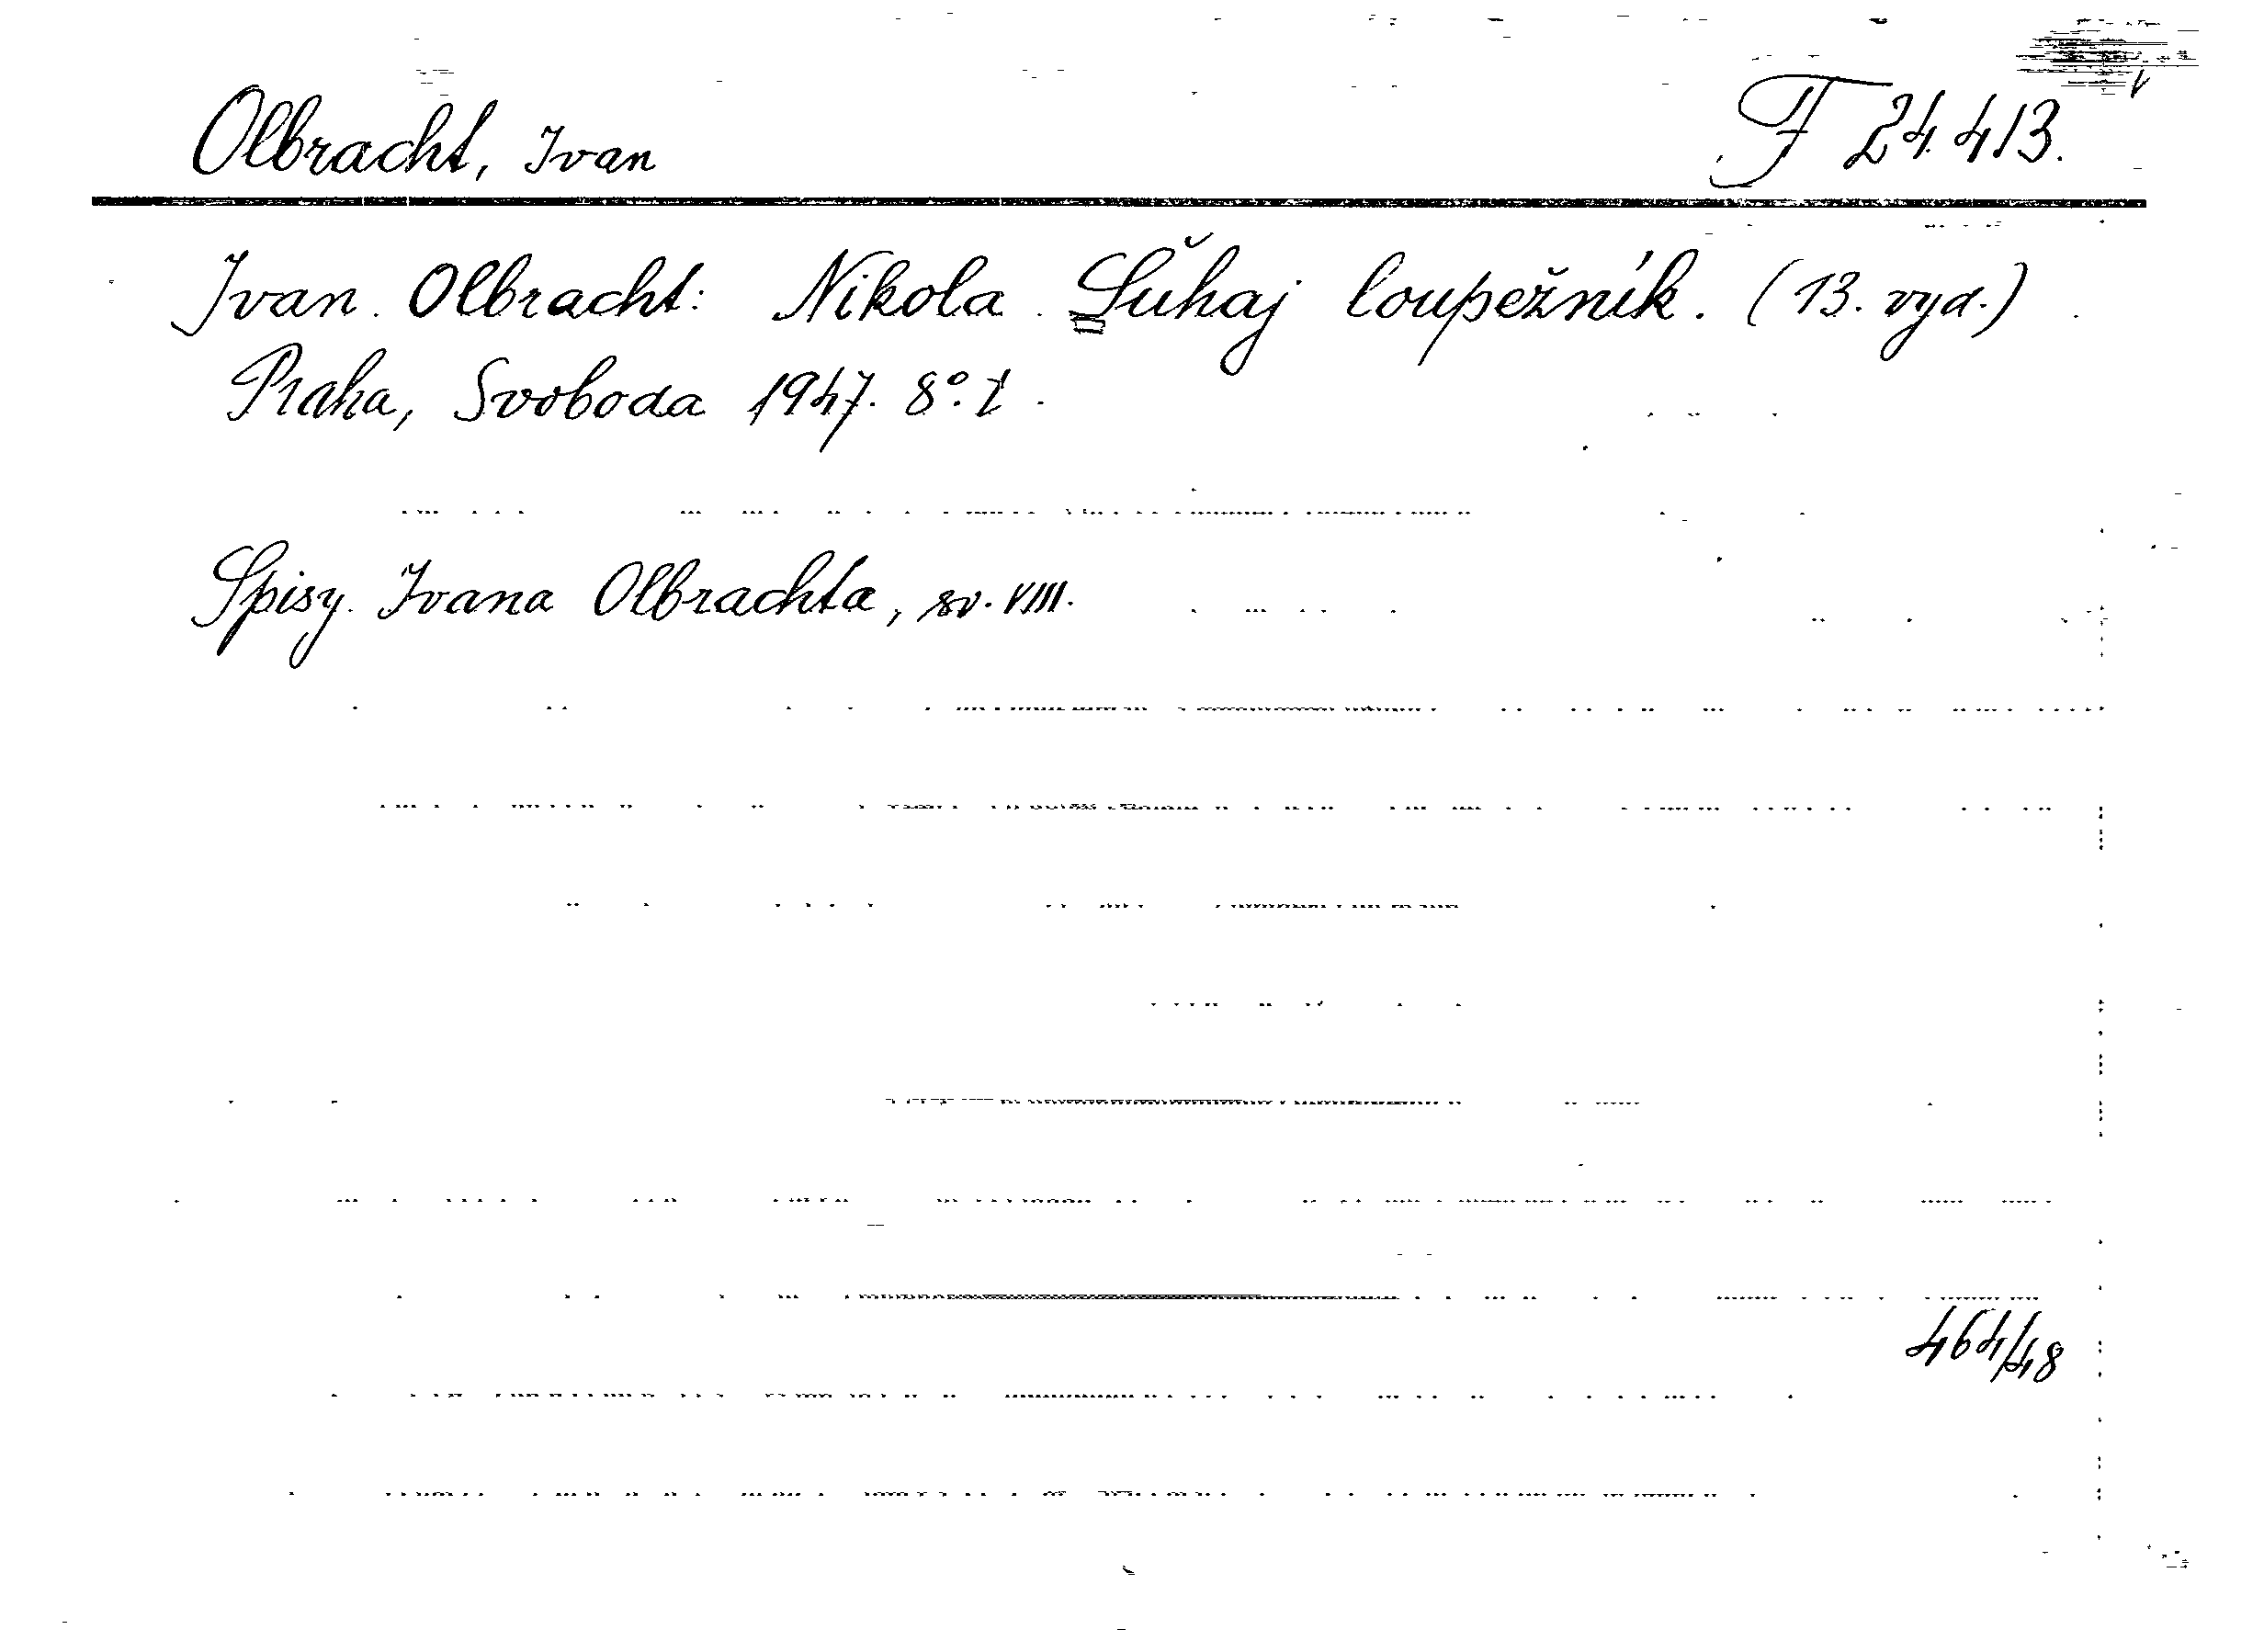 Olbracht, Ivan F 24.413.
Ivan Olbracht: Nikola Šuhaj loupežník. (13. vyd.)
Praha, Svoboda 1947. 8°.
Spisy Ivana Olbrachta, sv. VIII.
464/48